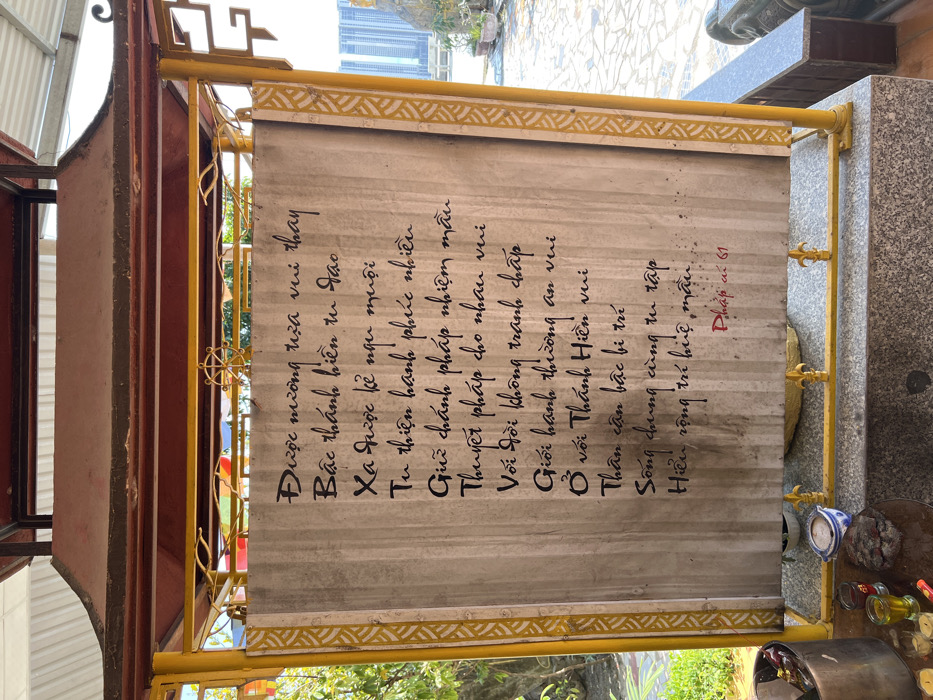 Được nương tựa vui thay
Bậc thánh hiền tu đạo
Xa được kẻ ngu muội
Tu thiện hành phúc nhiều
Giữ chánh pháp nhiệm mầu
Thuyết pháp cho nhau vui
Với đời không tranh chấp
Giới hành thường an vui
Ở với Thánh Hiền vui
Thân cận bậc bi trí
Sống chung cùng tu tập
Hiểu rộng trí huệ mầu
Pháp cú 61